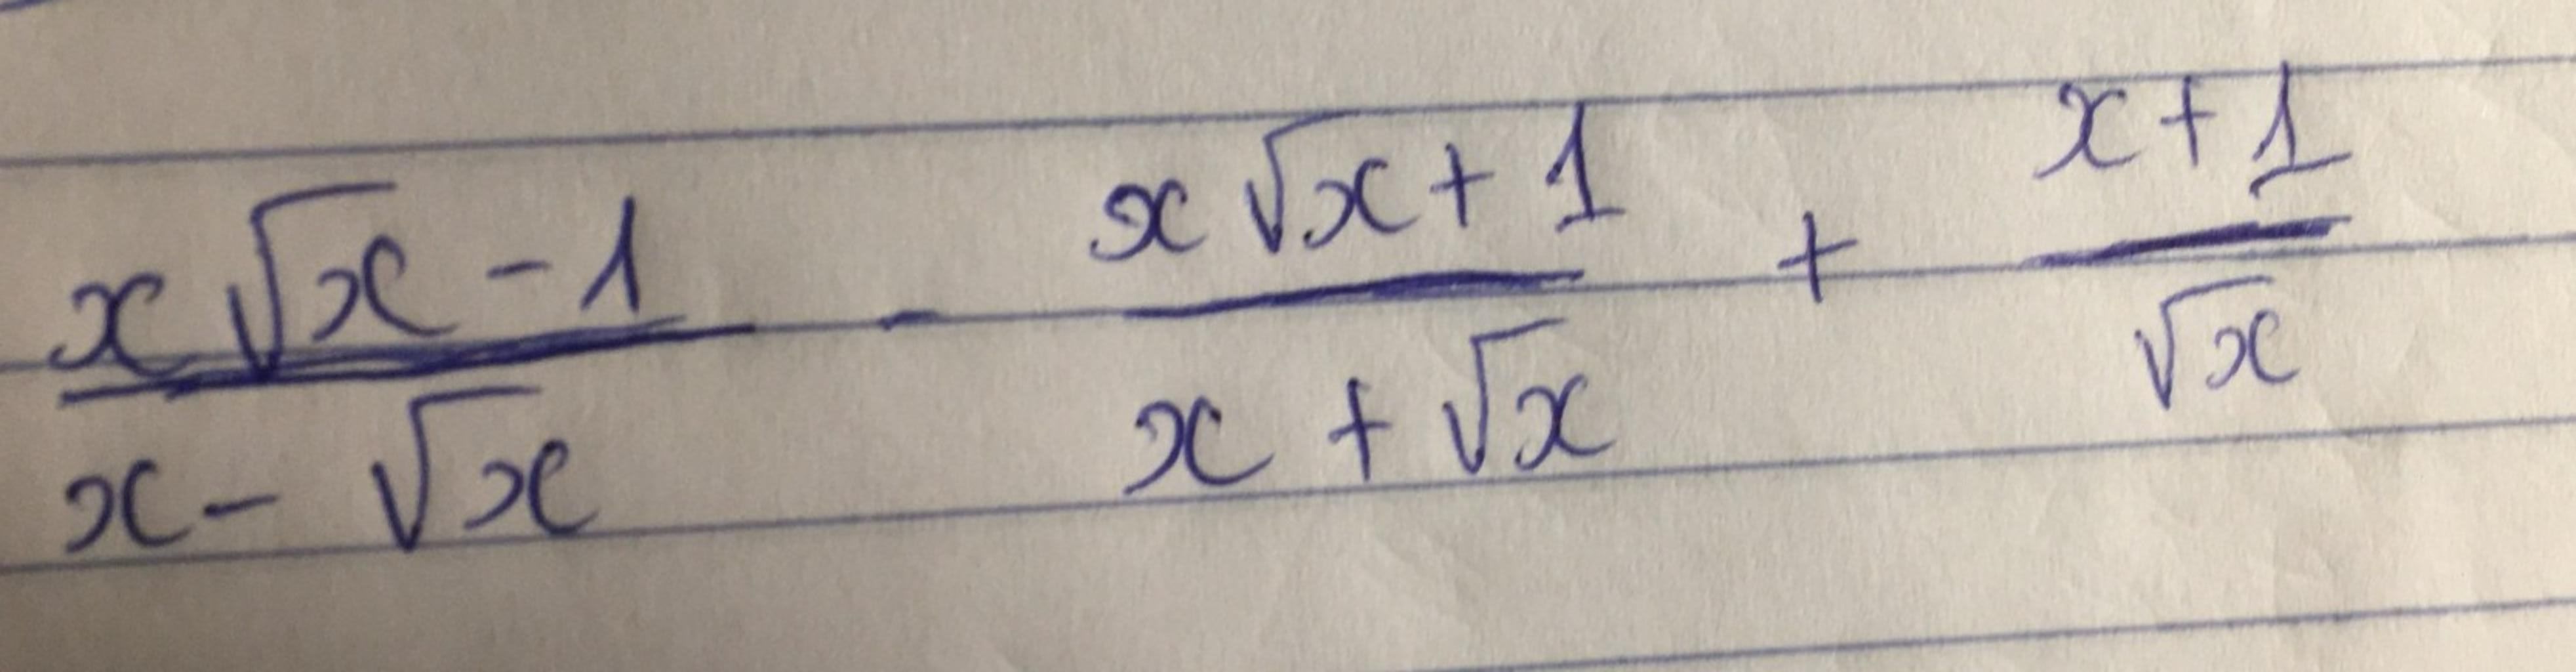 \frac{x\sqrt{x}-1}{x-\sqrt{x}} - \frac{x\sqrt{x}+1}{x+\sqrt{x}} + \frac{x+1}{\sqrt{x}}